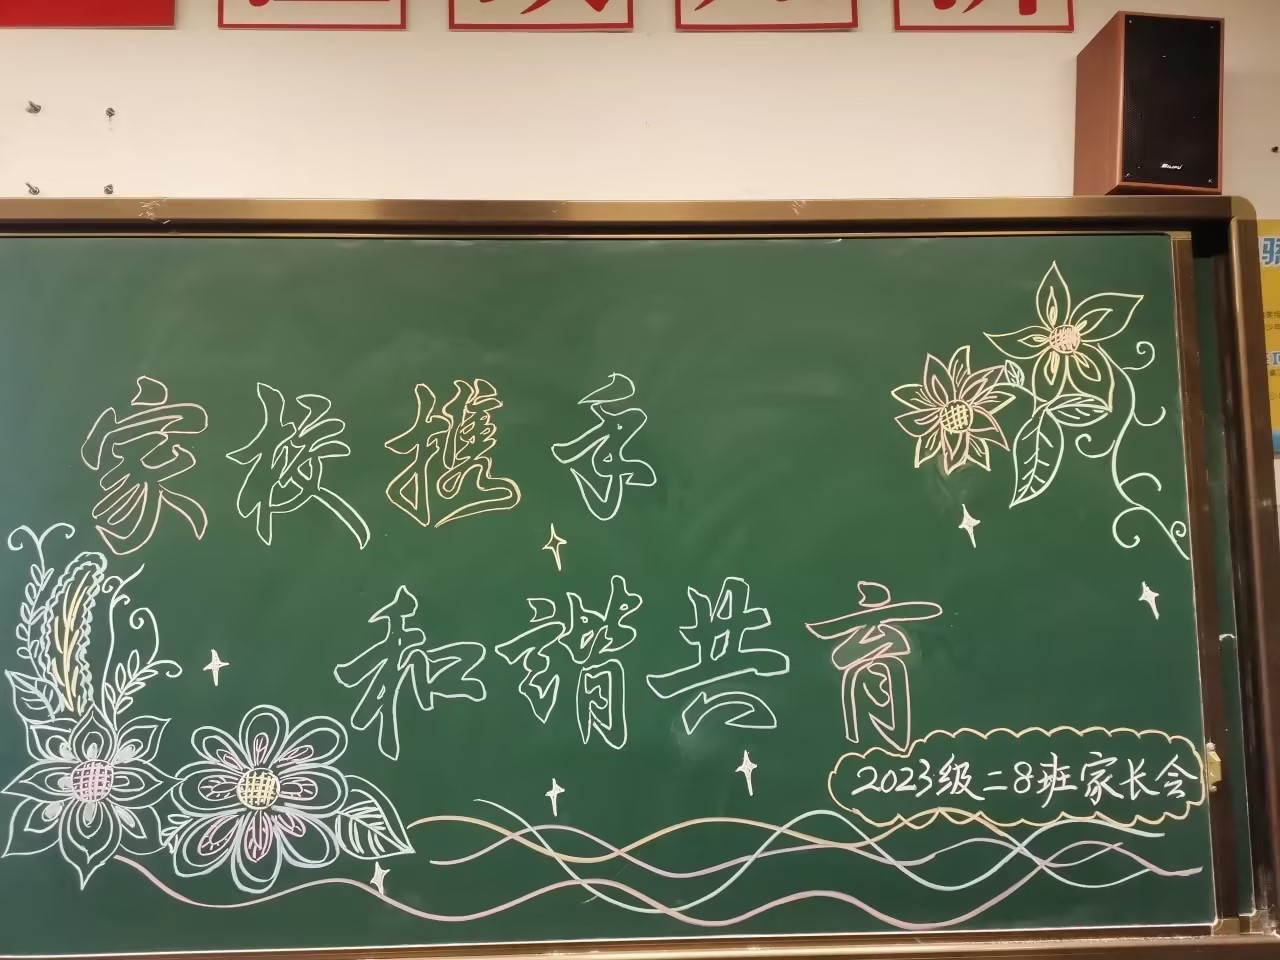 家校携手
和谐共育
2023级二8班家长会